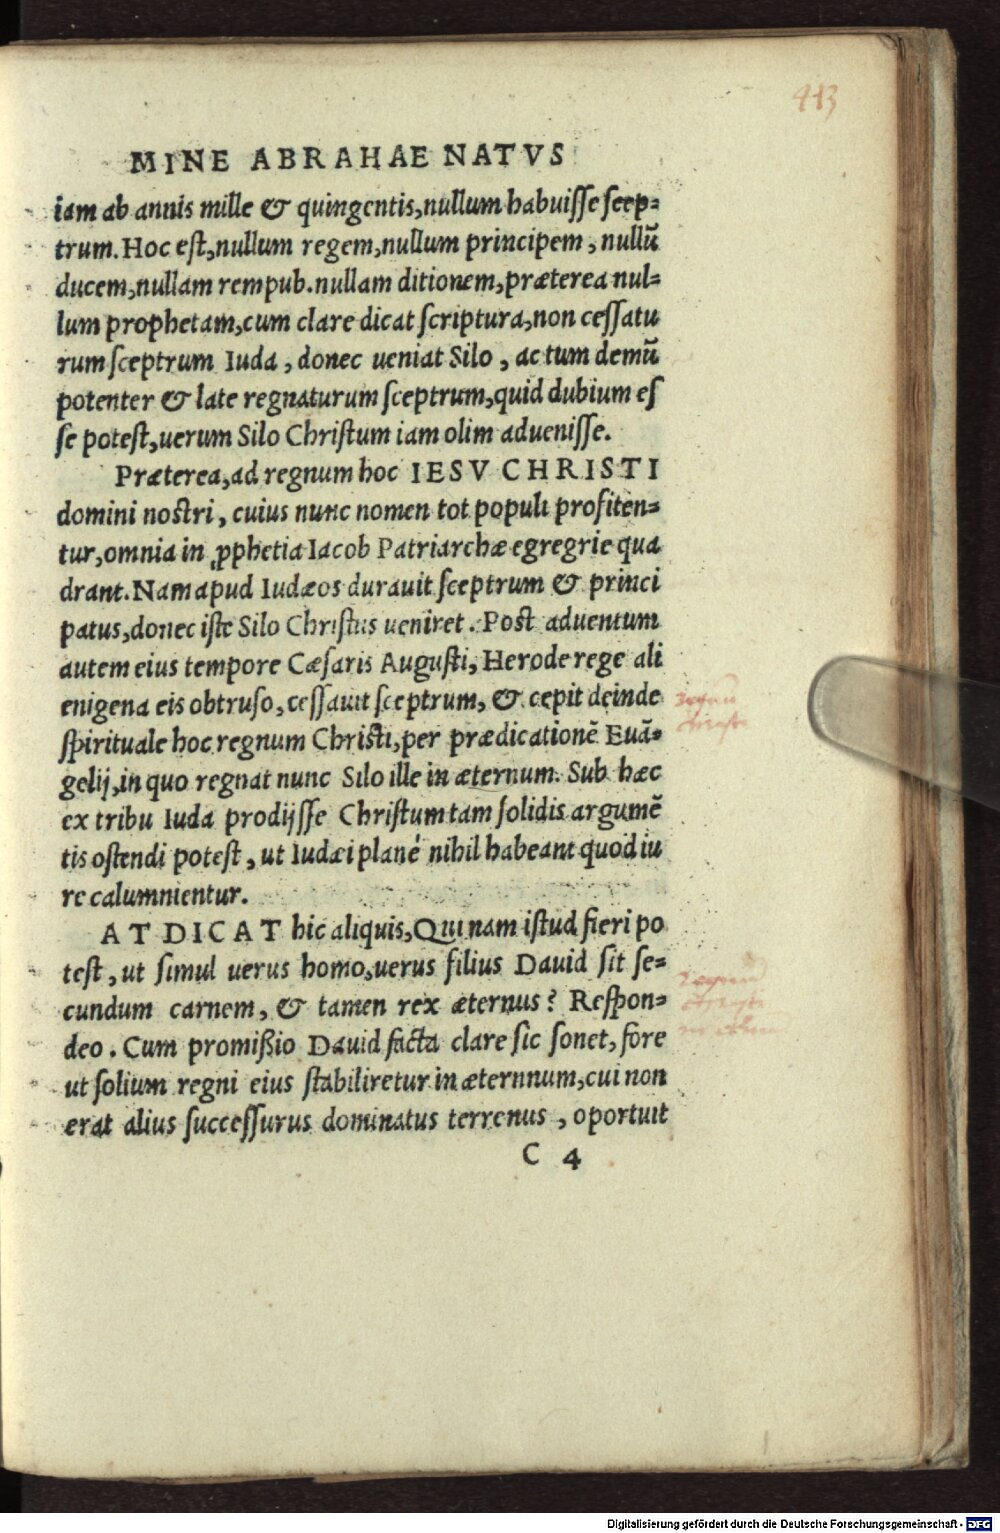 413
MINE ABRAHAE NATVS
iam ab annis mille & quingentis, nullum habuisse scep=
trum. Hoc est, nullum regem, nullum principem, nullũ
ducem, nullam rempub. nullam ditionem, præterea nul=
lum prophetam, cum clare dicat scriptura, non cessatu
rum sceptrum Iuda, donec ueniat Silo, ac tum demũ
potenter & late regnaturum sceptrum, quid dubium es
se potest, uerum Silo Christum iam olim aduenisse.
Præterea, ad regnum hoc IESV CHRISTI
domini nostri, cuius nunc nomen tot populi profiten=
tur, omnia in ꝓphetia Iacob Patriarchæ egregrie qua
drant. Nam apud Iudæos durauit sceptrum & princi
patus, donec iste Silo Christus ueniret. Post aduentum
autem eius tempore Cæsaris Augusti, Herode rege ali
enigena eis obtruso, cessauit sceptrum, & cepit deinde
spirituale hoc regnum Christi, per prædicationẽ Euã=
gelij, in quo regnat nunc Silo ille in æternum. Sub hæc
ex tribu Iuda prodijsse Christum tam solidis argumẽ
tis ostendi potest, ut Iudæi planè nihil habeant quod iu
re calumnientur.
AT DICAT hic aliquis, Qui nam istud fieri po
test, ut simul uerus homo, uerus filius Dauid sit se=
cundum carnem, & tamen rex æternus? Respon=
deo. Cum promißio Dauid facta clare sic sonet, fore
ut solium regni eius stabiliretur in æternnum, cui non
erat alius successurus dominatus terrenus, oportuit
C 4
Digitalisierung gefördert durch die Deutsche Forschungsgemeinschaft - DFG